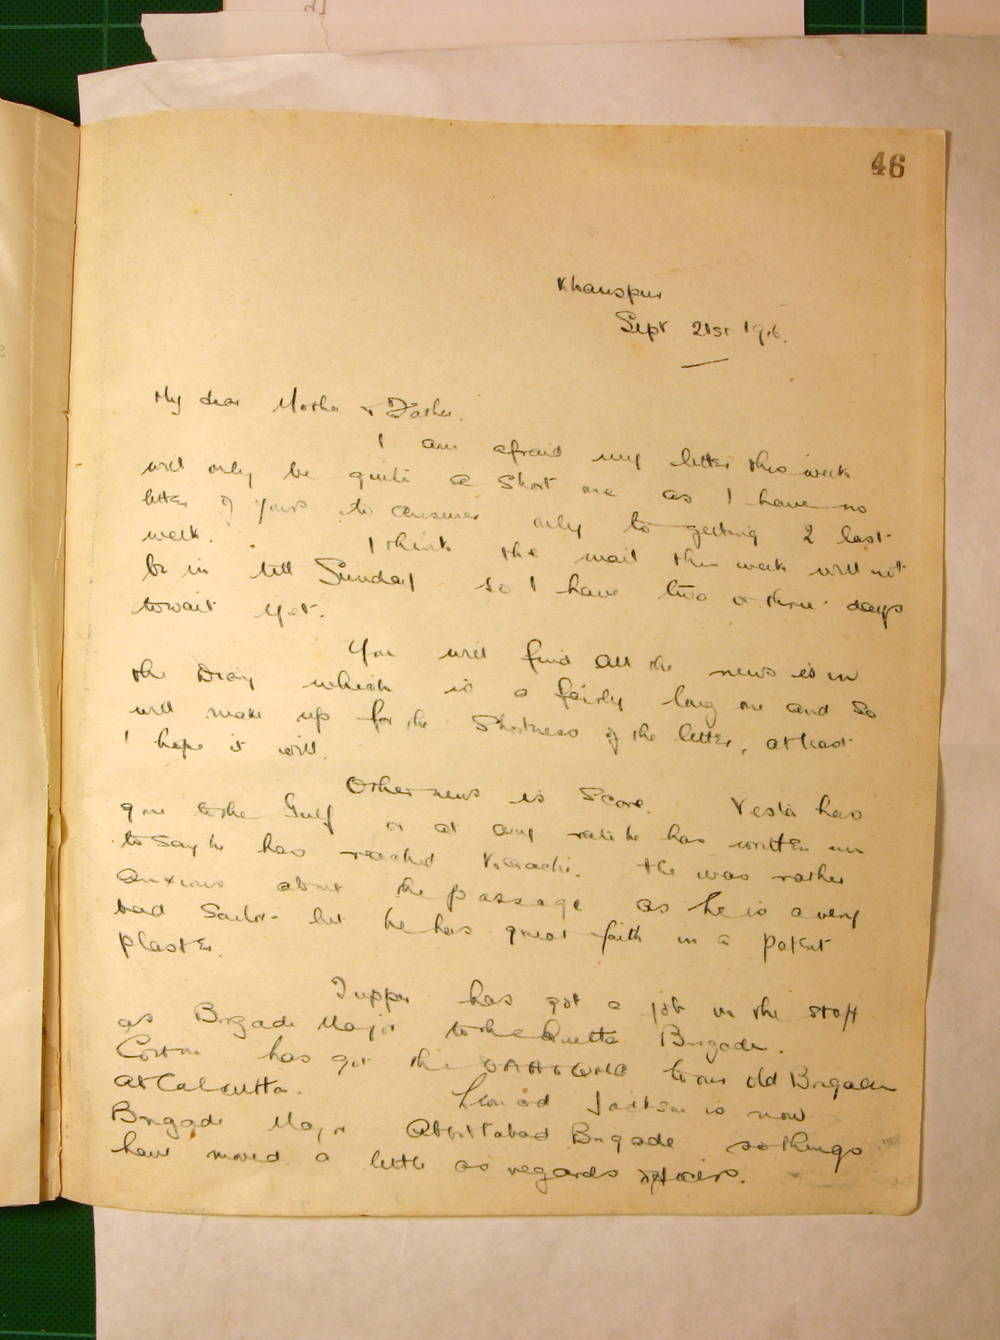 46
Khanspur
Sept 21st 1916.
My dear Mother & Father.
I am afraid my letter this week
will only be quite a short one as I have no
letter of yours to answer only to getting 2 last
week. I think the mail this week will not
be in till Sunday so I have two or three days
to wait yet.
You will find all the news is in
the Diary which is a fairly long one and so
will make up for the shortness of the letter, at least
I hope it will.
Other news is scarce. has
gone to the Gulf or at any rate he has written me
to say he has reached Karachi. He was rather
anxious about the passage as he is a very
bad sailor but he has great faith in a patent
plaster.
Tupper has got a job in the staff
as Brigade Major to the Quetta Brigade.
has got the to our old Brigade
at Calcutta. Leonard Jackson is now
Brigade Major Abbottabad Brigade so things
have moved a little as regards officers.